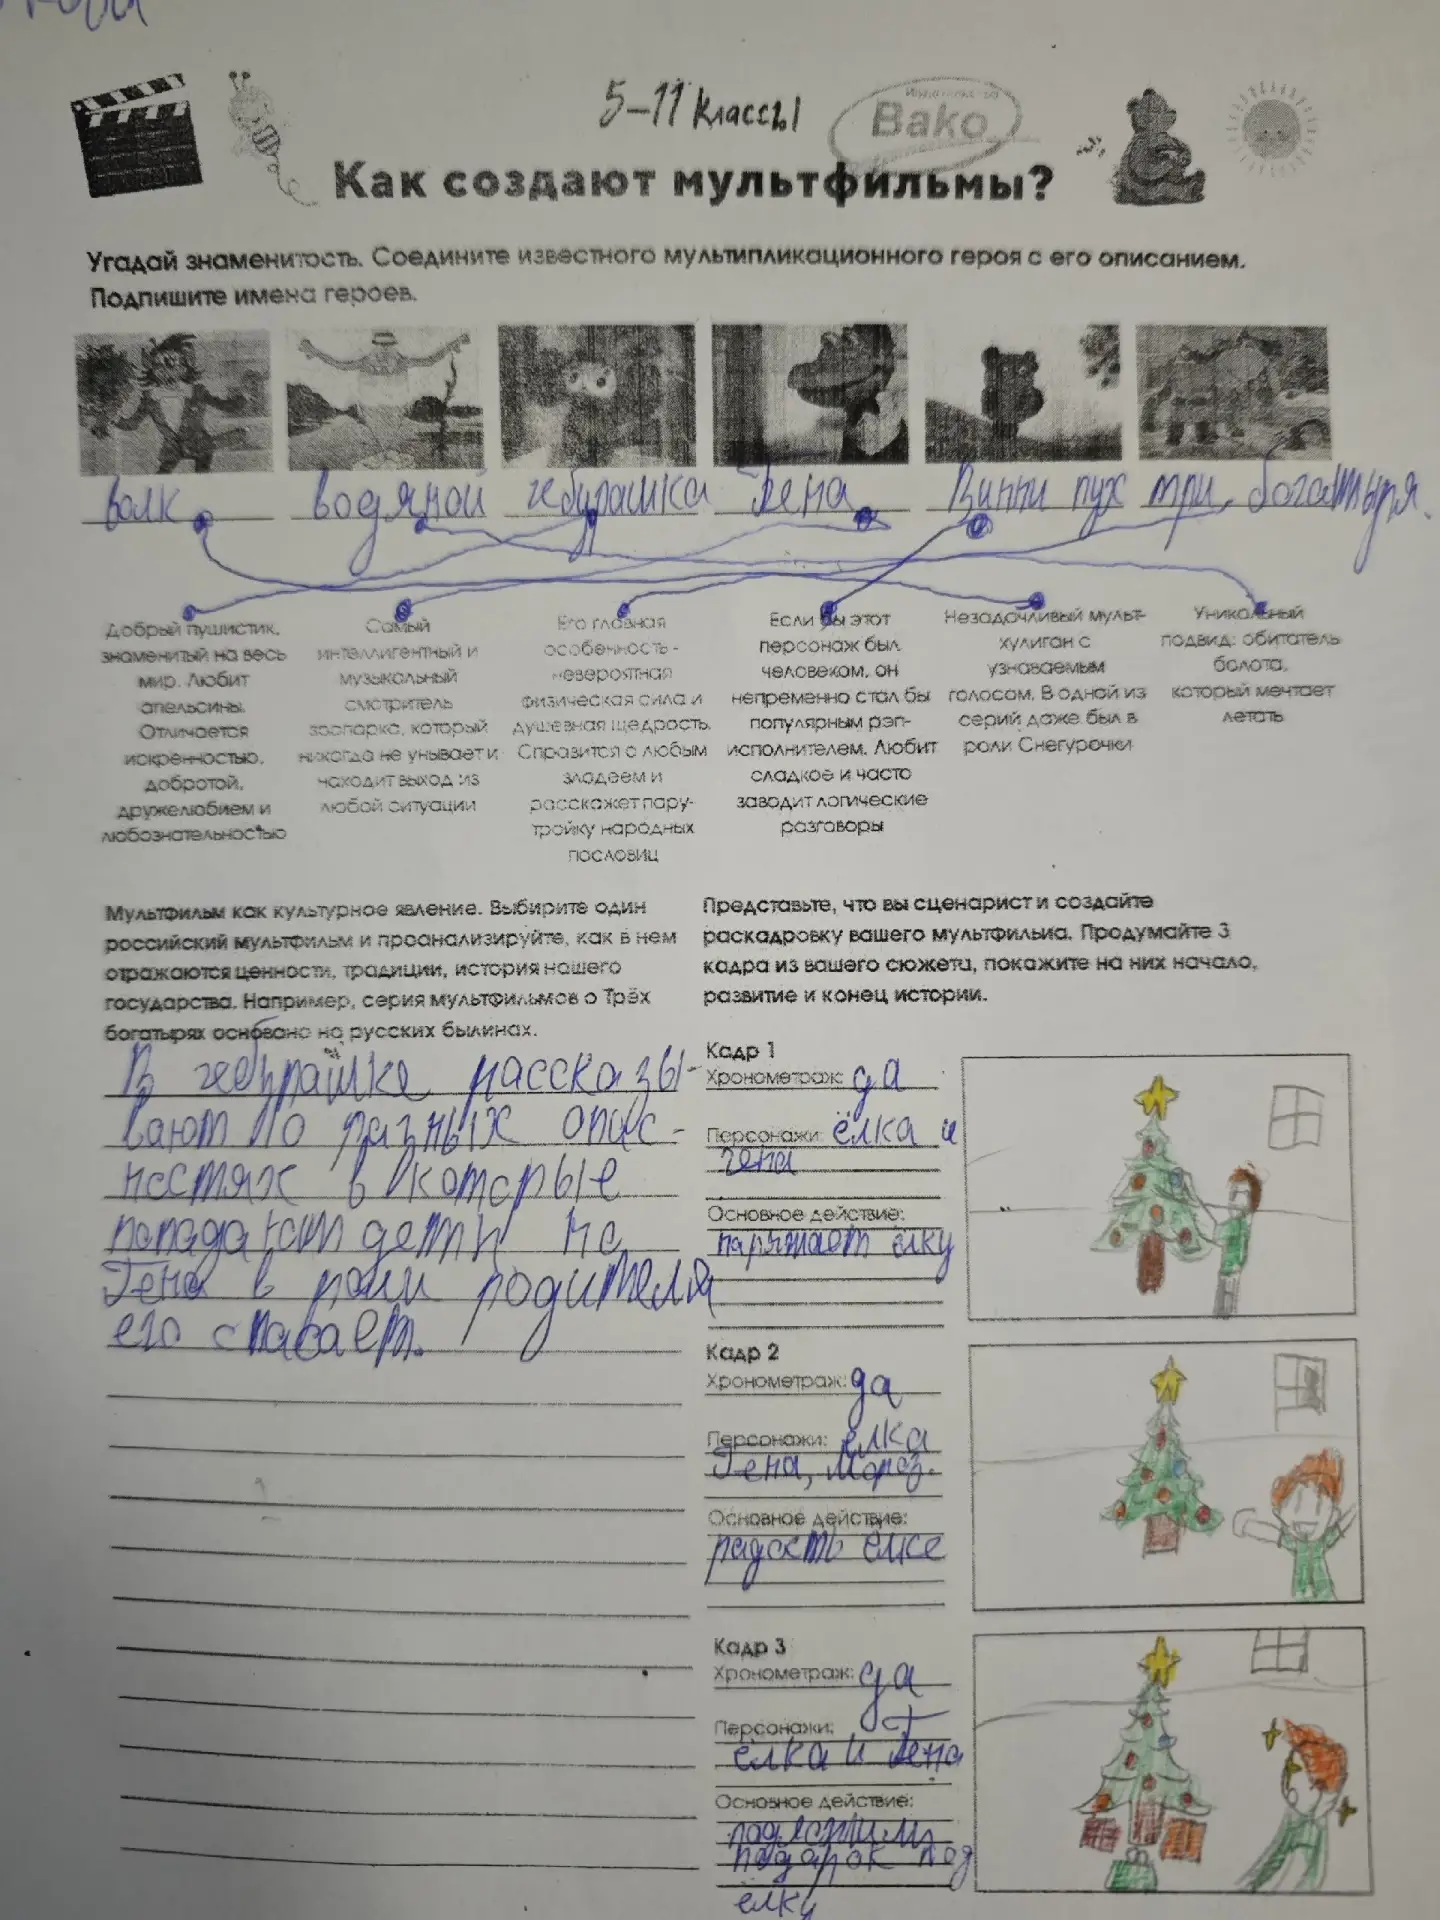 5-11 классы
Издательство
Bako
Как создают мультфильмы?
Угадай знаменитость. Соедините известного мультипликационного героя с его описанием.
Подпишите имена героев.
волк водяной чебурашка Гена Винни пух три богатыря.
Добрый пушистик,
знаменитый на весь
мир. Любит
апельсины.
Отличается
искренностью,
добротой,
дружелюбием и
любознательностью
Самый
интеллигентный и
музыкальный
смотритель
зоопарка, который
никогда не унывает и
находит выход из
любой ситуации
Его главная
особенность -
невероятная
физическая сила и
душевная щедрость.
Справится с любым
злодеем и
расскажет пару-
тройку народных
пословиц
Если бы этот
персонаж был
человеком, он
непременно стал бы
популярным рэп-
исполнителем. Любит
сладкое и часто
заводит логические
разговоры
Незадачливый мульт-
хулиган с
узнаваемым
голосом. В одной из
серий даже был в
роли Снегурочки
Уникальный
подвид: обитатель
болота,
который мечтает
летать
Мультфильм как культурное явление. Выбирите один
российский мультфильм и проанализируйте, как в нем
отражаются ценности, традиции, история нашего
государства. Например, серия мультфильмов о Трёх
богатырях основана на русских былинах.
В чебурашке рассказы-
вают о разных опас-
ностях в которые
попадают дети но
Гена в роли родителя
его спасает.
Представьте, что вы сценарист и создайте
раскадровку вашего мультфильма. Продумайте 3
кадра из вашего сюжета, покажите на них начало,
развитие и конец истории.
Кадр 1
Хронометраж: да
Персонажи: ёлка и
гена
Основное действие:
наряжает ёлку
Кадр 2
Хронометраж: да
Персонажи: ёлка
Гена, Мороз.
Основное действие:
радость ёлке
Кадр 3
Хронометраж: да
Персонажи:
ёлка и Гена
Основное действие:
подарок под
ёлку